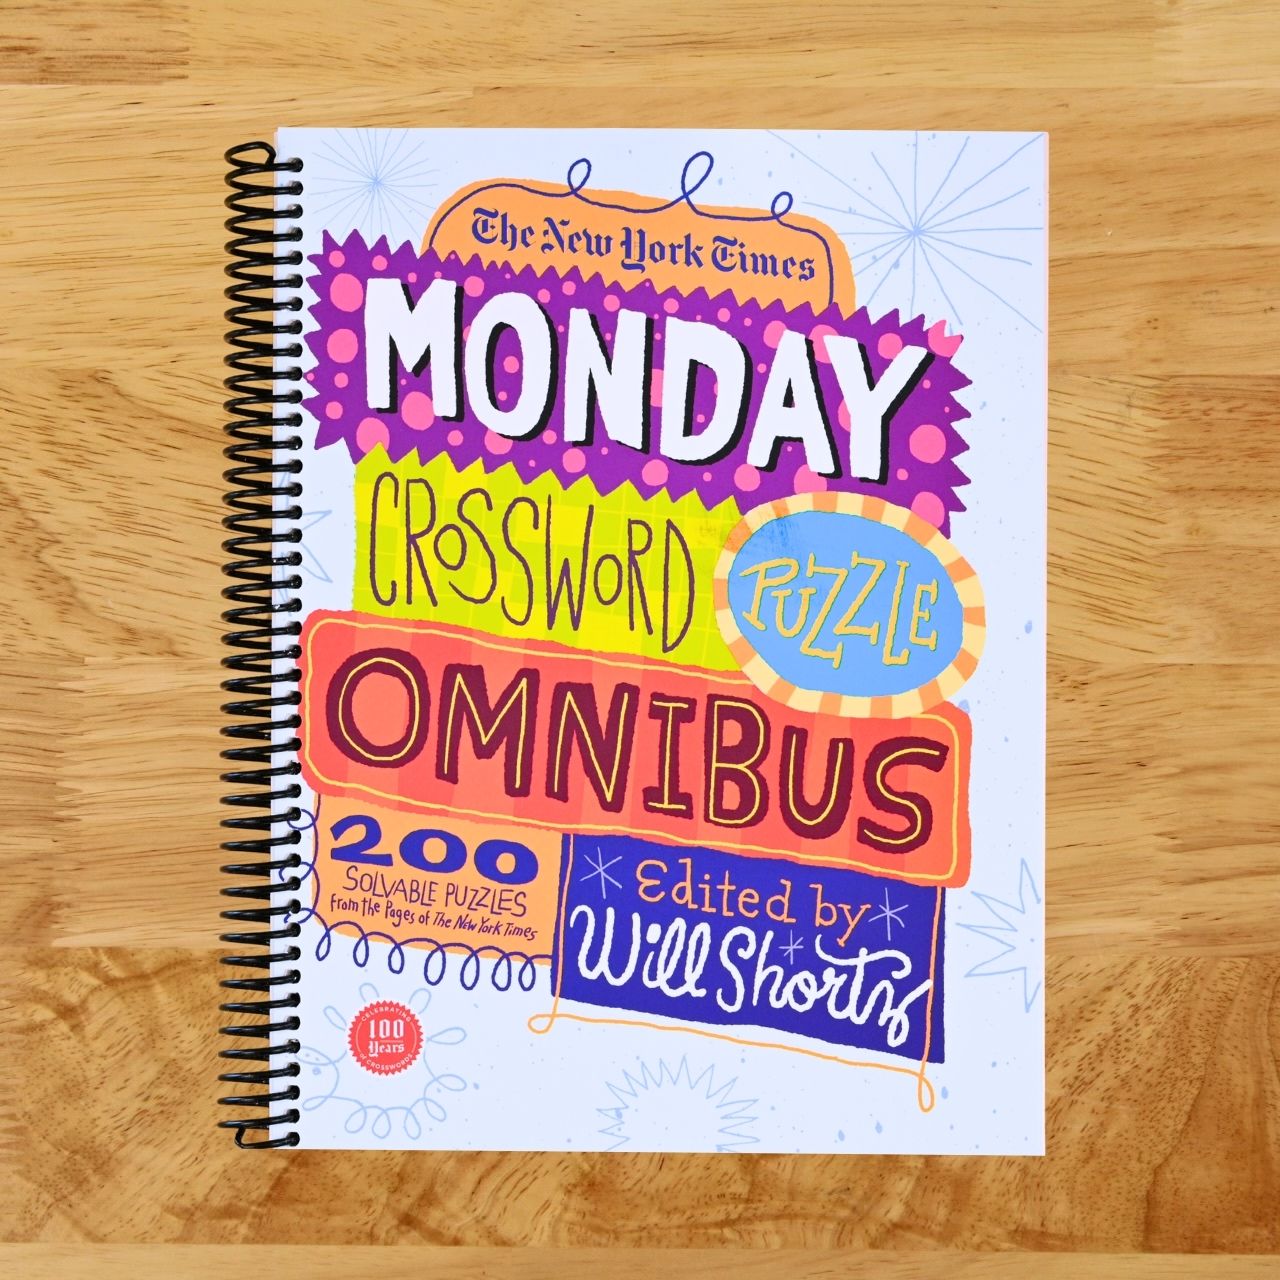 The New York Times
MONDAY
CROSSWORD
PUZZLE
OMNIBUS
200
SOLVABLE PUZZLES
from the Pages of The New York Times
Edited by
Will Shortz
CELEBRATING
100
Years
of CROSSWORDS